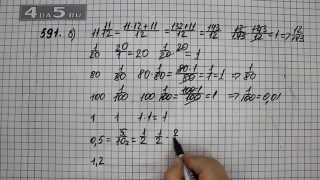 4da5.ru
591. б) 11 11/12 = (11·12+11)/12 = (132+11)/12 = 143/12 12/143 · 143/12 = 1 ⇒ 12/143
20 1/20 20/1 = 20 1/20 · 20 = 1
80 1/80 80 · 1/80 = (80·1)/80 = 1/1 = 1 ⇒ 1/80
100 1/100 100 · 1/100 = (100·1)/100 = 1 ⇒ 1/100 = 0,01
1 1 1·1 = 1
0,5 = 5/10₂ = 1/2 1/2 · 2
1,2